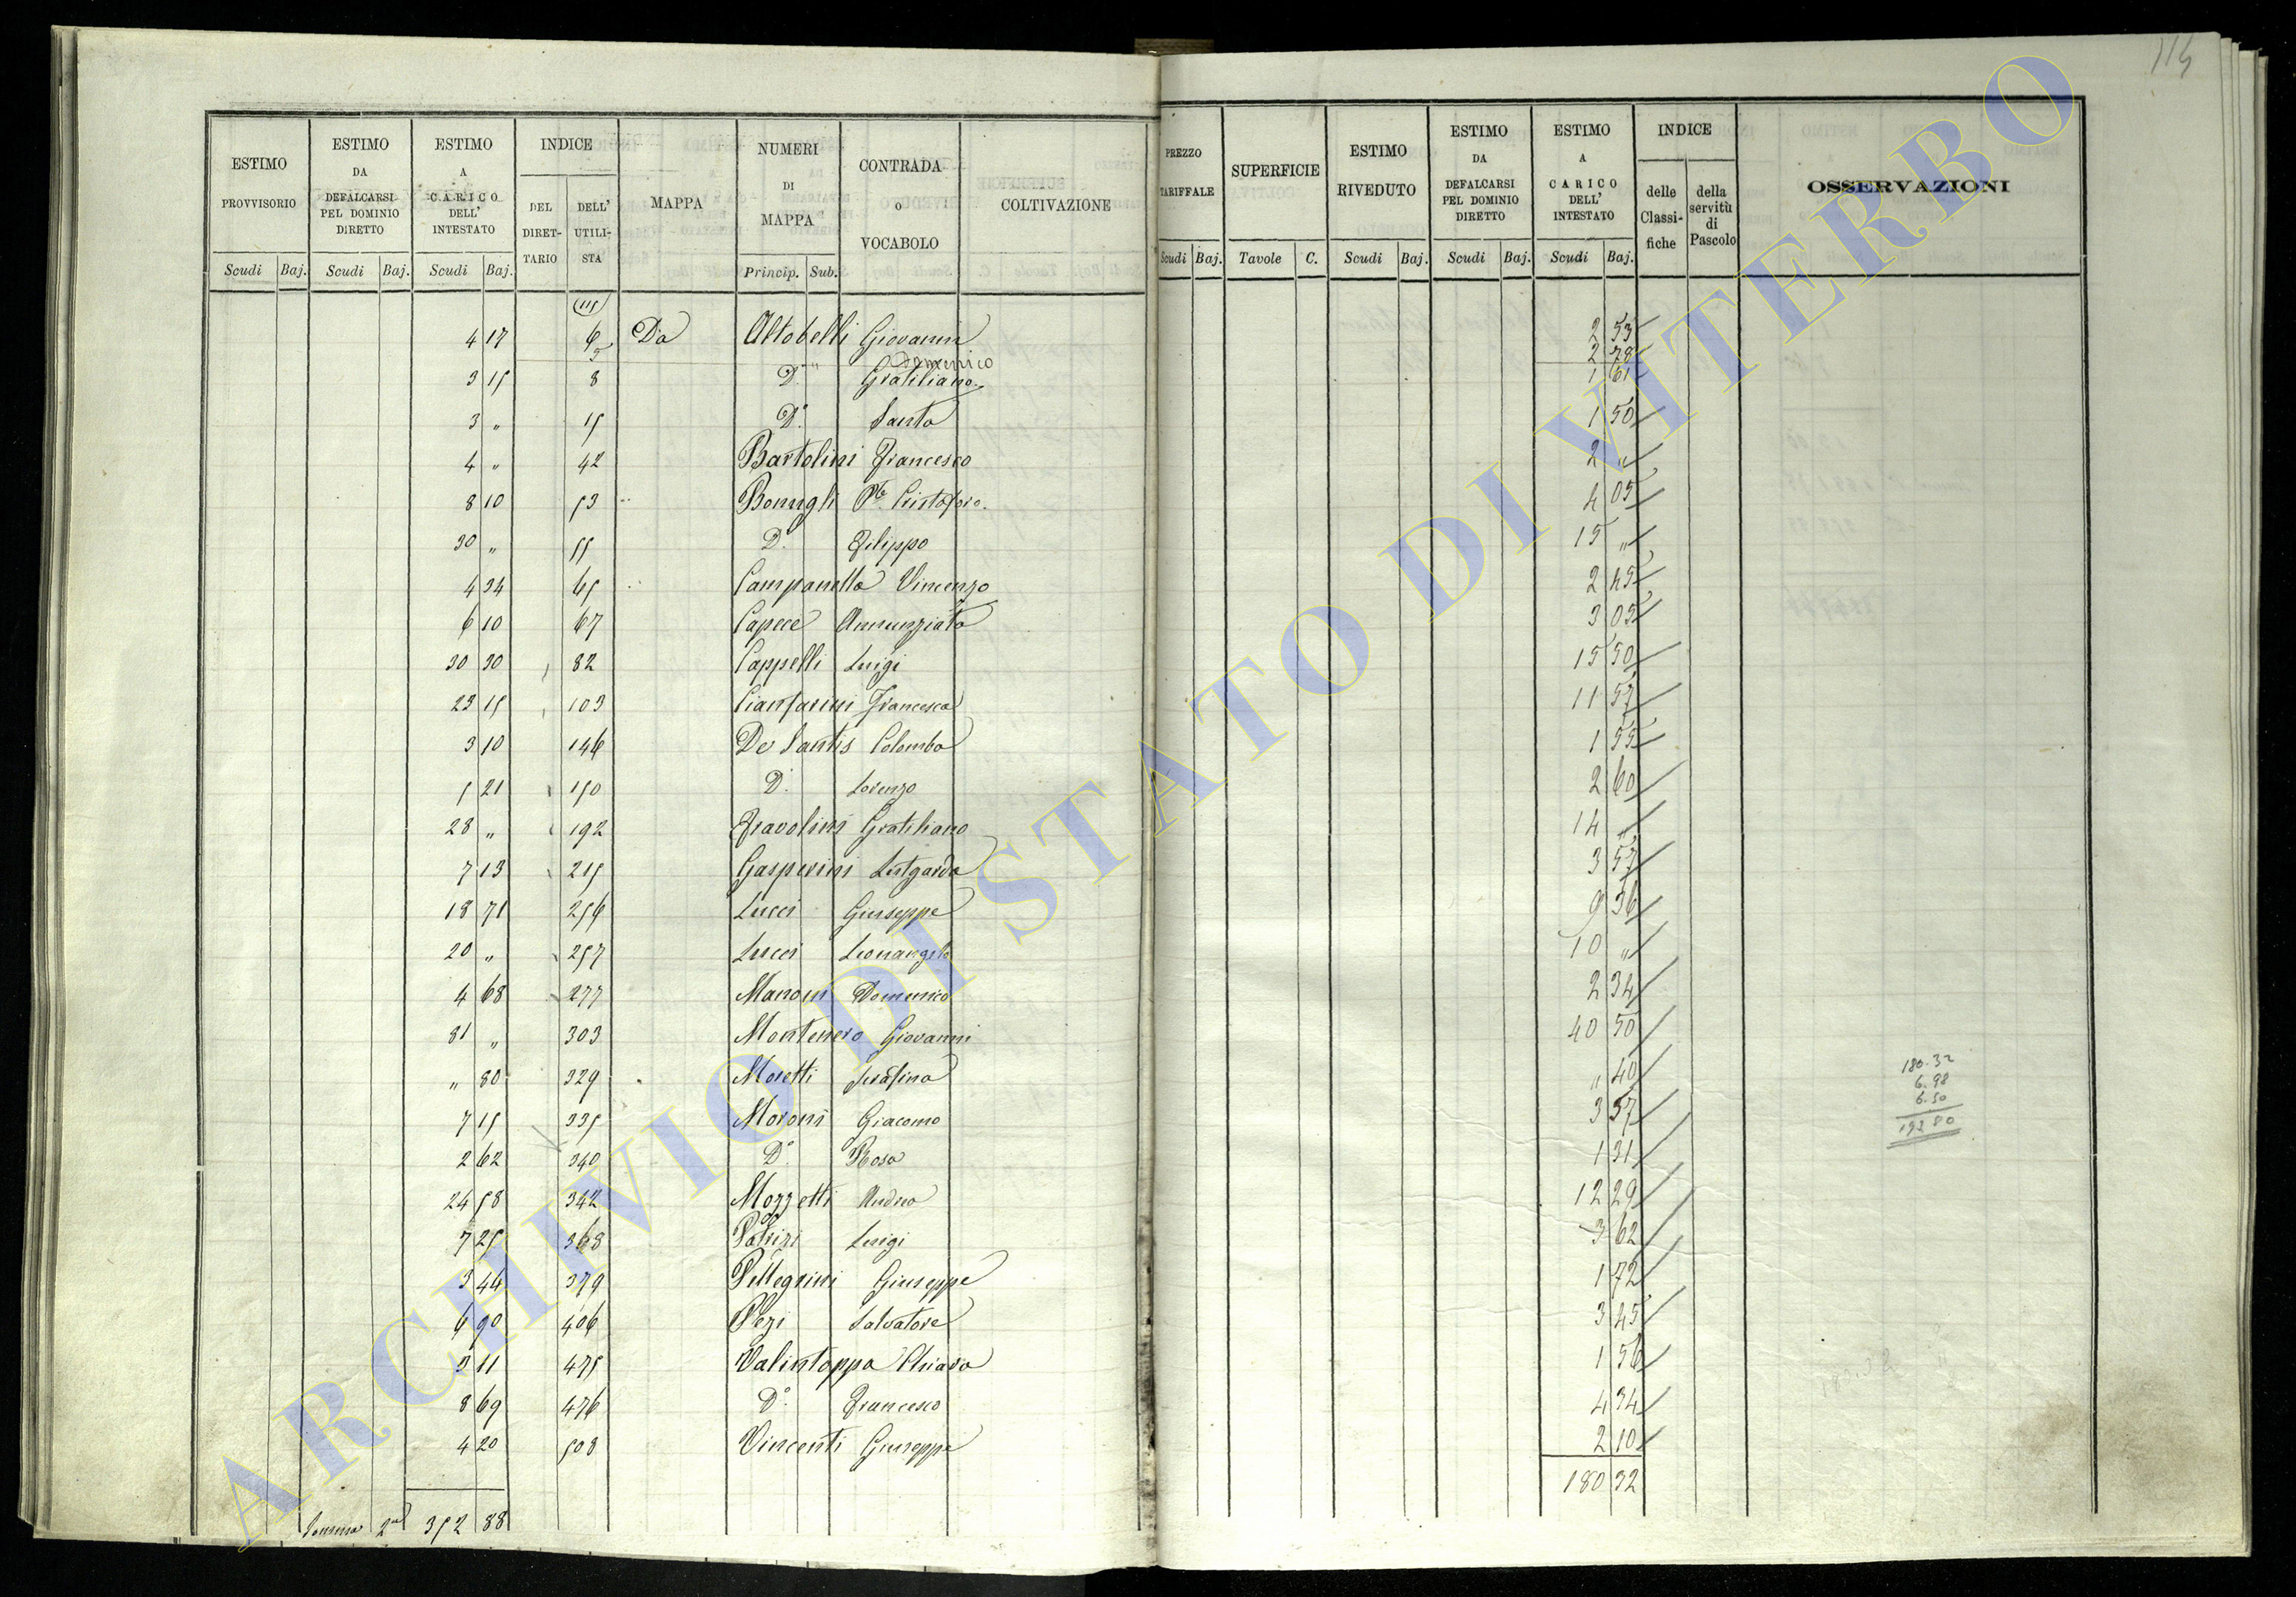 114
ESTIMO PROVVISORIO Scudi Baj.
ESTIMO DA DEFALCARSI PEL DOMINIO DIRETTO Scudi Baj.
ESTIMO A CARICO DELL' INTESTATO Scudi Baj.
INDICE DEL DIRETTARIO DELL' UTILISTA
MAPPA
NUMERI DI MAPPA Princip. Sub.
CONTRADA O VOCABOLO
COLTIVAZIONE
PREZZO TARIFFALE Scudi Baj.
SUPERFICIE Tavole C.
ESTIMO RIVEDUTO Scudi Baj.
ESTIMO DA DEFALCARSI PEL DOMINIO DIRETTO Scudi Baj.
ESTIMO A CARICO DELL' INTESTATO Scudi Baj.
INDICE delle Classifiche della servitù di Pascolo
OSSERVAZIONI
4 17 6 Da Altobelli Giovanni 2 53
5 " Domenico 2 78
3 15 8 D.° Gratiliano 1 61
3 " 15 D.° Santa 1 50
4 " 42 Bartolini Francesco 2 "
8 10 53 Cristoforo 4 05
30 " 55 D.° Filippo 15 "
4 34 65 Campanella Vincenzo 2 45
6 10 67 Capece Annunziata 3 05
30 30 82 Cappelli Luigi 15 50
23 15 103 Cianfarini Francesca 11 57
3 10 146 De Santis Colomba 1 55
5 21 150 D.° Lorenzo 2 60
28 " 192 Fravolini Gratiliano 14 "
7 13 215 Gasperini Lutgarda 3 57
18 71 256 Lucci Giuseppe 9 36
20 " 257 Lucci Leonangelo 10 "
4 68 277 Manoni Domenico 2 34
81 " 303 Montenero Giovanni 40 50
" 80 329 Moretti Serafina " 40
7 15 335 Moroni Giacomo 3 57
2 62 340 D.° Rosa 1 31
24 58 342 Mozzetti Andrea 12 29
7 25 368 Patrizi Luigi 3 62
3 44 379 Pellegrini Giuseppe 1 72
6 90 406 Pezi Salvatore 3 45
3 11 475 Valintoppa Chiara 1 56
8 69 476 D.° Francesco 4 34
4 20 508 Vincenti Giuseppe 2 10
180 32
Somma 2a 352 88
180.32
6.98
6.50
192 80
ARCHIVIO DI STATO DI VITERBO